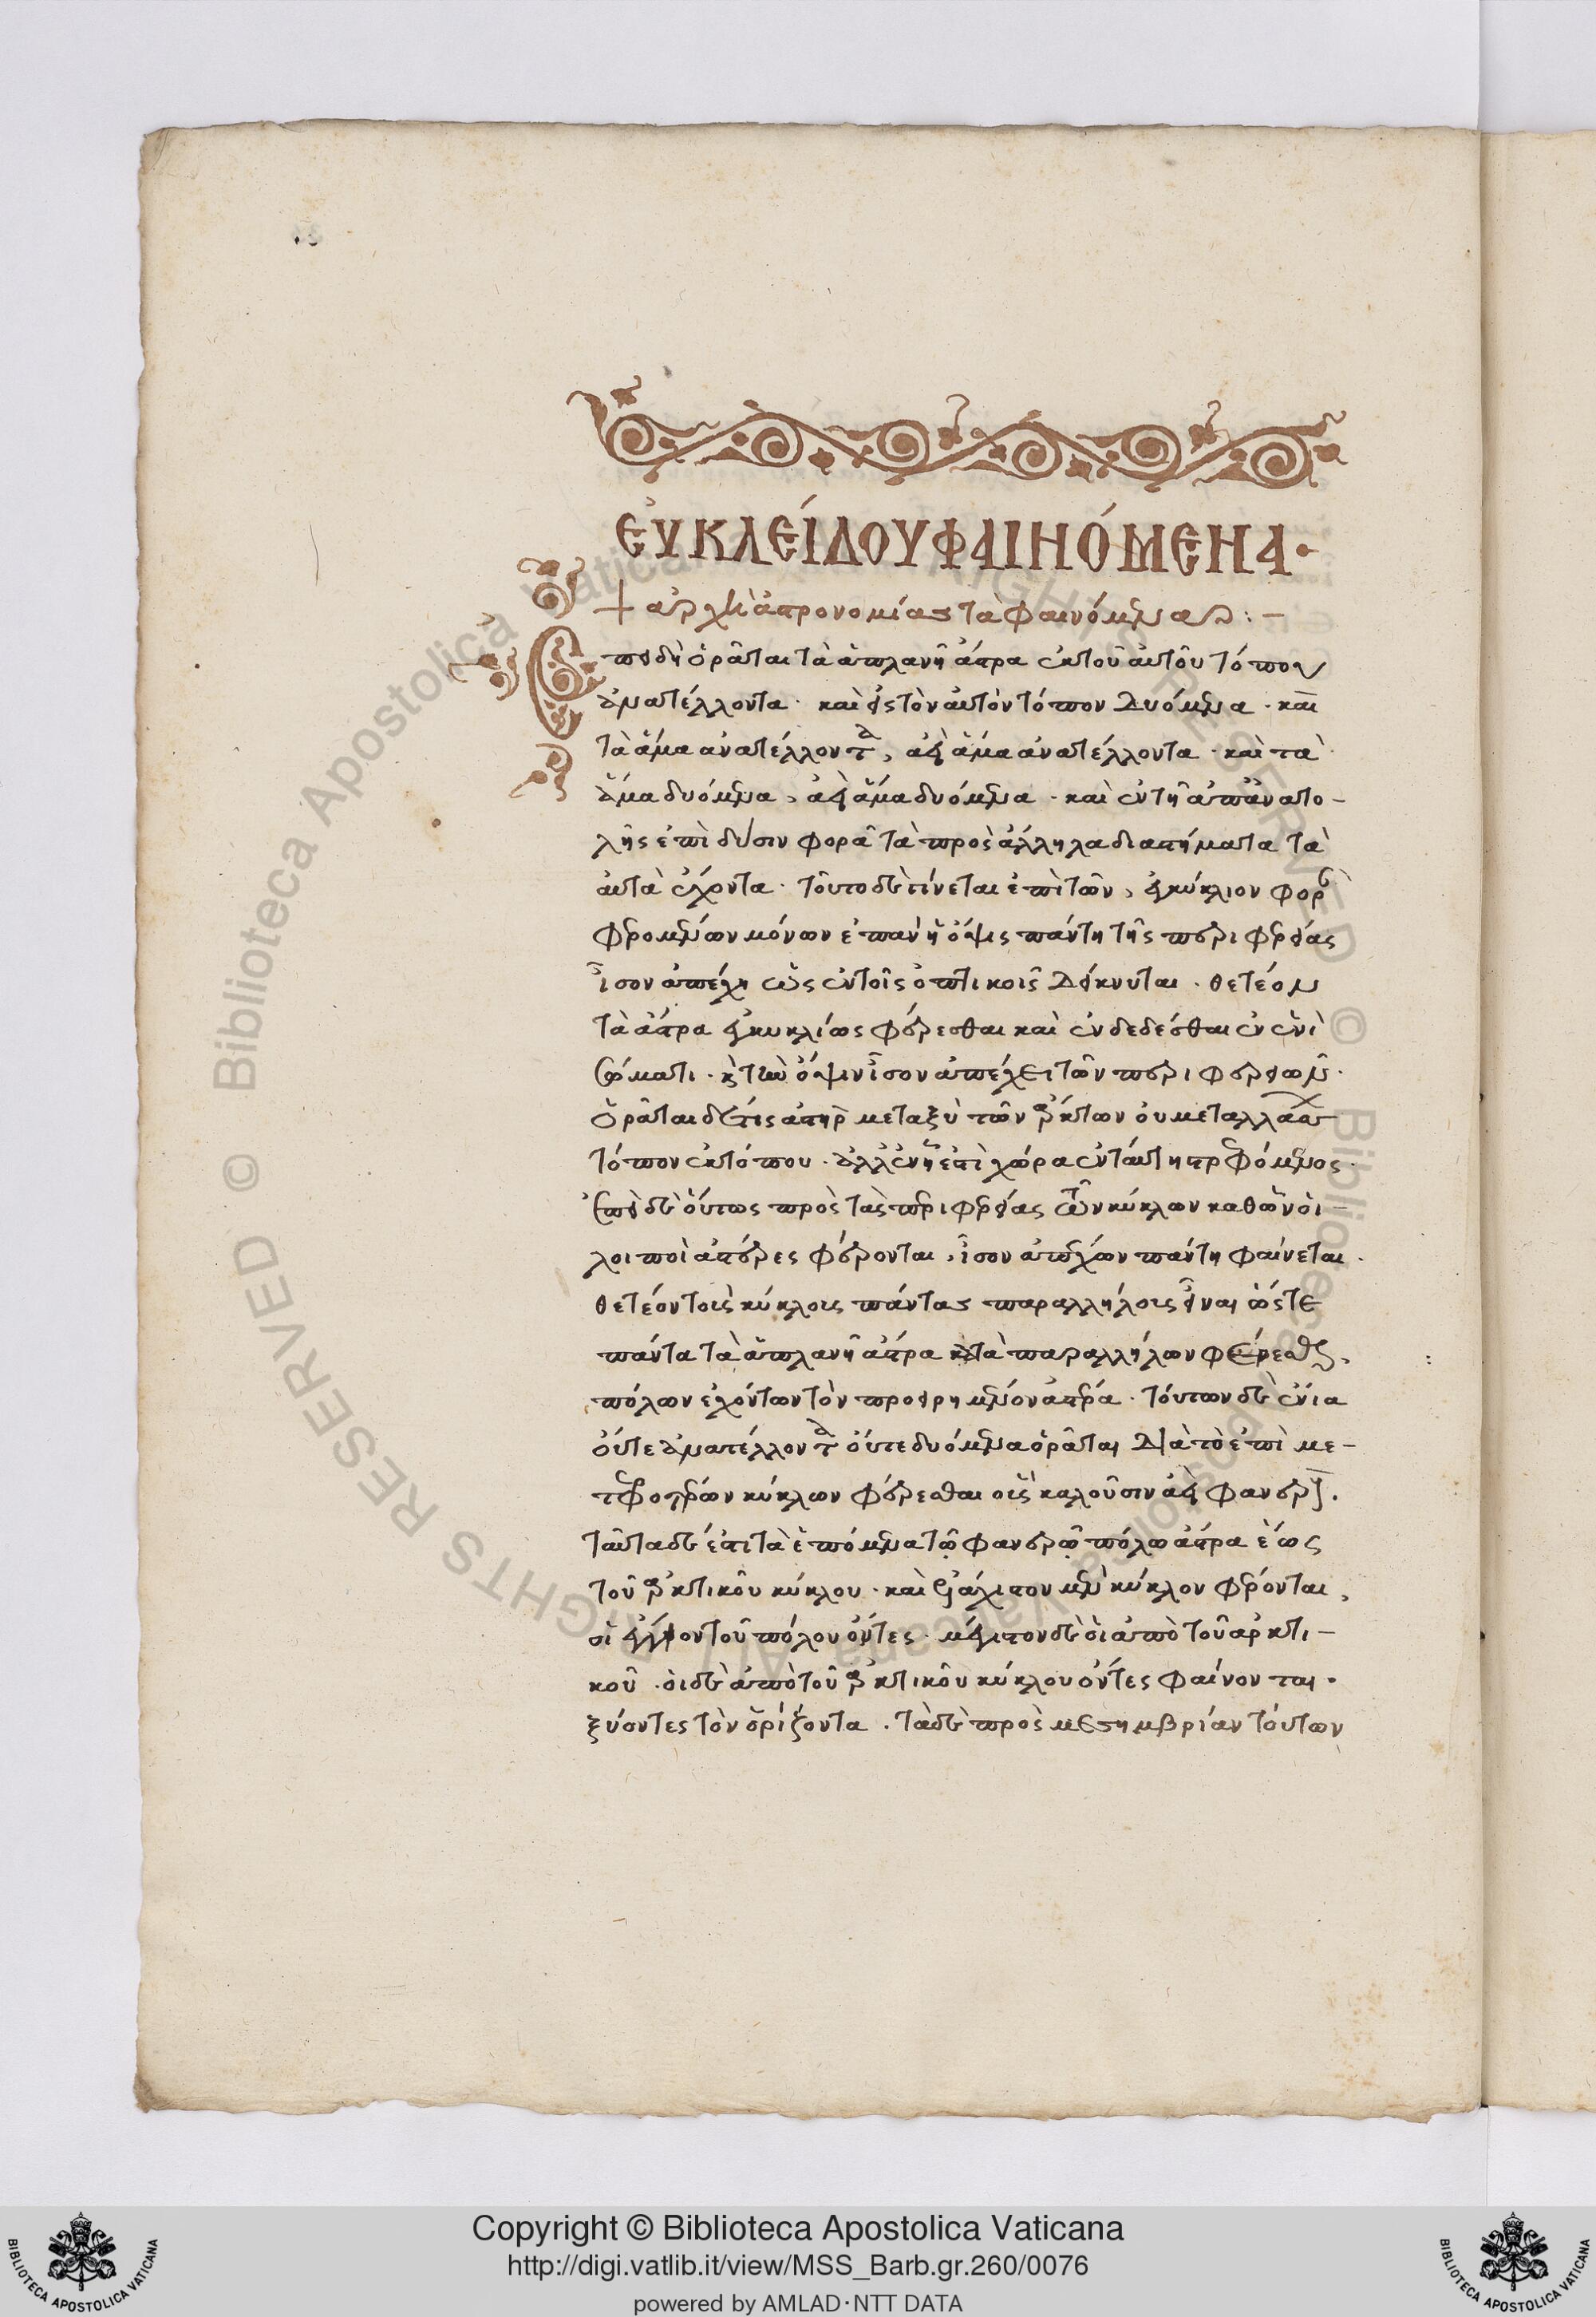 ΕΥΚΛΕΊΔΟΥ ΦΑΙΝΌΜΕΝΑ·
+ ἀρχὴ ἀστρονομίας τὰ φαινόμενα :-
Ἐπειδὴ ὁρᾶται τὰ ἀπλανῆ ἄστρα ἐκ τοῦ αὐτοῦ τόπου
ἀνατέλλοντα · καὶ εἰς τὸν αὐτὸν τόπον δυόμενα · καὶ
τὰ ἅμα ἀνατέλλοντα, ἀεὶ ἅμα ἀνατέλλοντα · καὶ τὰ
ἅμα δυόμενα, ἀεὶ ἅμα δυόμενα · καὶ ἐν τῇ ἀπ' ἀνατο-
λῆς ἐπὶ δύσιν φορᾷ τὰ πρὸς ἄλληλα διαστήματα τὰ
αὐτὰ ἔχοντα · τοῦτο δὲ γίνεται ἐπὶ τῶν, ἐγκύκλιον φορὰν
φερομένων μόνων ἐπὰν ἡ ὄψις πάντῃ τῆς περιφερείας
ἴσον ἀπέχῃ ὡς ἐν τοῖς ὀπτικοῖς δείκνυται · θετέον
τὰ ἄστρα ἐγκυκλίως φέρεσθαι καὶ ἐνδεδέσθαι ἐν ἑνὶ
σώματι · καὶ τὴν ὄψιν ἴσον ἀπέχει τῶν περιφερειῶν ·
Ὁρᾶται δέ τις ἀστὴρ μεταξὺ τῶν ἄρκτων οὐ μεταλλάσσων
τόπον ἐκ τόπου · ἀλλ' ἐν ᾗ ἐστὶ χώρα ἐν ταύτῃ στρεφόμενος ·
Ἐπεὶ δὲ οὕτως πρὸς τὰς περιφερείας τῶν κύκλων καθ' ὧν οἱ
λοιποὶ ἀστέρες φέρονται, ἴσον ἀπέχων πάντῃ φαίνεται ·
θετέον τοὺς κύκλους πάντας παραλλήλους εἶναι ὥστε
πάντα τὰ ἀπλανῆ ἄστρα κατὰ παραλλήλων φέρεσθαι,
πόλων ἐχόντων τὸν προειρημένον ἀστέρα · τούτων δὲ ἔνια
οὔτε ἀνατέλλοντα οὔτε δυόμενα ὁρᾶται διὰ τὸ ἐπὶ με-
τεώρων κύκλων φέρεσθαι οὓς καλοῦσιν ἀεὶ φανερούς.
ταῦτα δέ ἐστι τὰ ἑπόμενα τῷ φανερῷ πόλῳ ἄστρα ἕως
τοῦ ἀρκτικοῦ κύκλου · καὶ ἐλάχιστον μὲν κύκλον φέρονται,
οἱ ἔγγιον τοῦ πόλου ὄντες · μέγιστον δὲ οἱ ἀπὸ τοῦ ἀρκτι-
κοῦ · οἱ δὲ ἀπὸ τοῦ ἀρκτικοῦ κύκλου ὄντες φαίνονται ·
ξύοντες τὸν ὁρίζοντα · τὰ δὲ πρὸς μεσημβρίαν τούτων
© Biblioteca Apostolica Vaticana
Copyright © Biblioteca Apostolica Vaticana
http://digi.vatlib.it/view/MSS_Barb.gr.260/0076
powered by AMLAD·NTT DATA
BIBLIOTECA APOSTOLICA VATICANA
BIBLIOTECA APOSTOLICA VATICANA